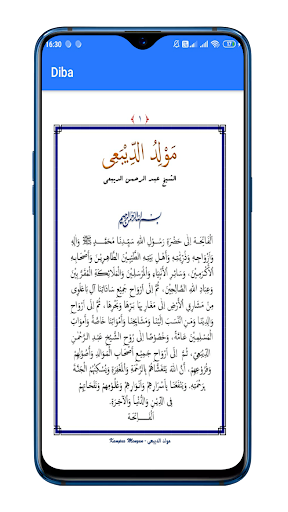 16:30
Diba
﴿ ١ ﴾
مَوْلِدُ الدِّيْبَعِى
الشيخ عبد الرحمن الديبعى
بِسْمِ اللهِ الرَّحْمٰنِ الرَّحِيْمِ
اَلْفَاتِحَةُ إِلَى حَضْرَةِ رَسُوْلِ اللهِ سَيِّدِنَا مُحَمَّدٍ ﷺ وَآلِهِ
وَأَزْوَاجِهِ وَذُرِّيَّتِهِ وَأَهْلِ بَيْتِهِ الطَّيِّبِيْنَ الطَّاهِرِيْنَ وَأَصْحَابِهِ
الْأَكْرَمِيْنَ، وَسَائِرِ الْأَنْبِيَاءِ وَالْمُرْسَلِيْنَ وَالْمَلَائِكَةِ الْمُقَرَّبِيْنَ
وَعِبَادِ اللهِ الصَّالِحِيْنَ، ثُمَّ إِلَى أَرْوَاحِ جَمِيْعِ سَادَاتِنَا آلِ بَاعَلَوِى
مِنْ مَشَارِقِ الْأَرْضِ إِلَى مَغَارِبِهَا بَرِّهَا وَبَحْرِهَا، ثُمَّ إِلَى أَرْوَاحِ
وَالِدِيْنَا وَمَنِ انْتَسَبَ إِلَيْنَا وَمَشَايِخِنَا وَأَمْوَاتِنَا خَاصَّةً وَأَمْوَاتِ
الْمُسْلِمِيْنَ عَامَّةً، وَخُصُوْصًا إِلَى رُوْحِ الشَّيْخِ عَبْدِ الرَّحْمٰنِ
الدِّيْبَعِى، ثُمَّ إِلَى أَرْوَاحِ جَمِيْعِ أَصْحَابِ الْمَوَالِدِ وَأُصُوْلِهِمْ
وَفُرُوْعِهِمْ، أَنَّ اللهَ يَتَغَشَّاهُمْ بِالرَّحْمَةِ وَالْمَغْفِرَةِ وَيُسْكِنُهُمُ الْجَنَّةَ
بِرَحْمَتِهِ، وَيَنْفَعُنَا بِأَسْرَارِهِمْ وَأَنْوَارِهِمْ وَعُلُوْمِهِمْ وَنَفَحَاتِهِمْ
فِى الدِّيْنِ وَالدُّنْيَا وَالْآخِرَةِ.
اَلْفَاتِحَة
Kampus Mengon - مولد الديبعى